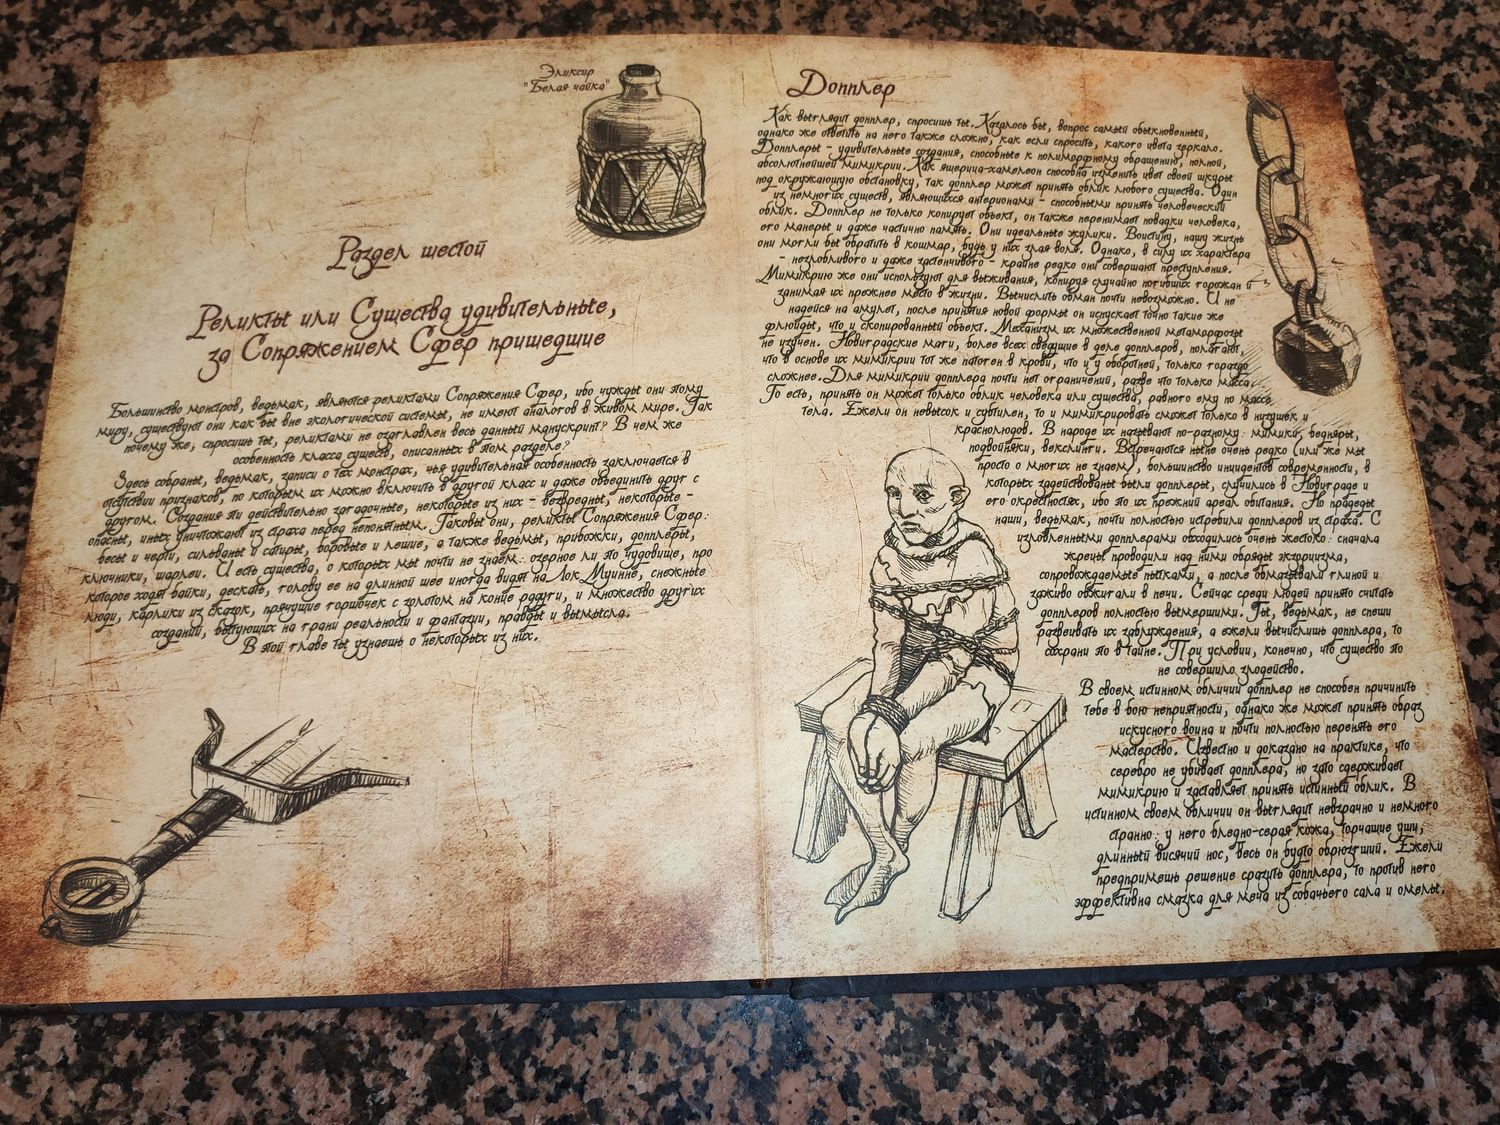 Эликсир
"Белая чайка"
Раздел шестой
Реликты или Существа удивительные,
за Сопряжением Сфер пришедшие
Большинство монстров, ведьмак, являются реликтами Сопряжения Сфер, ибо чужды они этому
миру, существуют они как бы вне экологической системы, не имеют аналогов в живом мире. Так
почему же, спросишь ты, реликтами не озаглавлен весь данный манускрипт? В чем же
особенность класса существ, описанных в этом разделе?
Здесь собраны, ведьмак, записи о тех монстрах, чья удивительная особенность заключается в
отсутствии признаков, по которым их можно включить в другой класс и даже объединить друг с
другом. Создания эти действительно загадочные, некоторые из них - безвредны, некоторые -
опасны, иных уничтожают из страха перед непонятным. Таковы они, реликты Сопряжения Сфер:
бесы и черти, сильваны и сатиры, боровые и лешие, а также ведьмы, прибожки, допплеры,
ключники, шарлеи. И есть существа, о которых мы почти не знаем: озерное ли это чудовище, про
которое ходят байки, дескать, голову ее на длинной шее иногда видят на Лок Муинне, снежные
люди, карлики из сказок, прячущие горшочек с золотом на конце радуги, и множество других
созданий, бытующих на грани реальности и фантазии, правды и вымысла.
В этой главе ты узнаешь о некоторых из них.
Допплер
Как выглядит допплер, спросишь ты. Казалось бы, вопрос самый обыкновенный,
однако же ответить на него также сложно, как если спросить, какого цвета зеркало.
Допплеры - удивительные создания, способные к полиморфному обращению, полной,
абсолютнейшей мимикрии. Как ящерица-хамелеон способна изменить цвет своей шкуры
под окружающую обстановку, так допплер может принять облик любого существа. Один
из немногих существ, являющихся антерионами - способными принять человеческий
облик. Допплер не только копирует объект, он также перенимает повадки человека,
его манеры и даже частично память. Они идеальные жулики. Воистину, нашу жизнь
они могли бы обратить в кошмар, будь у них злая воля. Однако, в силу их характера
- незлобливого и даже застенчивого - крайне редко они совершают преступления.
Мимикрию же они используют для выживания, копируя случайно погибших горожан и
занимая их прежнее место в жизни. Вычислить обман почти невозможно. И не
надейся на амулет, после принятия новой формы он испускает точно такие же
флюиды, что и скопированный объект. Механизм их множественной метаморфозы
не изучен. Новиградские маги, более всех сведущие в деле допплеров, полагают,
что в основе их мимикрии тот же патоген в крови, что и у оборотней, только гораздо
сложнее. Для мимикрии допплера почти нет ограничений, разве что только масса.
То есть, принять он может только облик человека или существа, равного ему по массе
тела. Ежели он невысок и субтилен, то и мимикрировать сможет только в низушек и
краснолюдов. В народе их называют по-разному: мимики, бедняры,
подвойняки, векслинги. Встречаются ныне очень редко (или же мы
просто о многих не знаем), большинство инцидентов современности, в
которых задействованы были допплеры, случились в Новиграде и
его окрестностях, ибо это их прежний ареал обитания. Но прадеды
наши, ведьмак, почти полностью истребили допплеров из страха. С
изловленными допплерами обходились очень жестоко: сначала
жрецы проводили над ними обряды экзорцизма,
сопровождаемые пытками, а после обмазывали глиной и
заживо обжигали в печи. Сейчас среди людей принято считать
допплеров полностью вымершими. Ты, ведьмак, не спеши
развеивать их заблуждения, а ежели вычислишь допплера, то
сохрани это в тайне. При условии, конечно, что существо это
не совершило злодейство.
В своем истинном обличии допплер не способен причинить
тебе в бою неприятности, однако же может принять образ
искусного воина и почти полностью перенять его
мастерство. Известно и доказано на практике, что
серебро не убивает допплера, но зато сдерживает
мимикрию и заставляет принять истинный облик. В
истинном своем обличии он выглядит невзрачно и немного
странно: у него бледно-серая кожа, торчащие уши,
длинный висячий нос, весь он будто обрюзгший. Ежели
предпримешь решение сразить допплера, то против него
эффективна смазка для меча из собачьего сала и омелы.